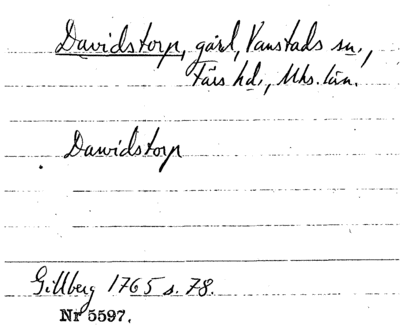 Davidstorp, gård, Vanstads sn.,
Färs hd., Mhs. län.
Dawidstorp
Gillberg 1765 s. 78.
Nr 5597.